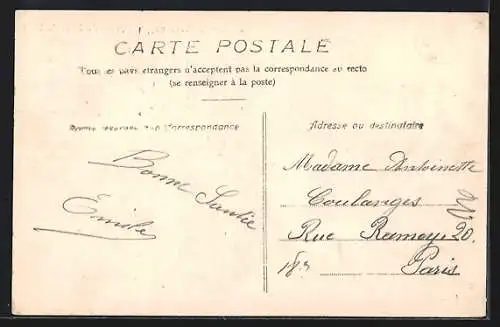 CARTE POSTALE
Tous les pays étrangers n'acceptent pas la correspondance au recto
(se renseigner à la poste)
Correspondance
Adresse du destinataire
Bonne Santée
Émile
Madame Antoinette
Coulanges
Rue Ramey 20.
Paris